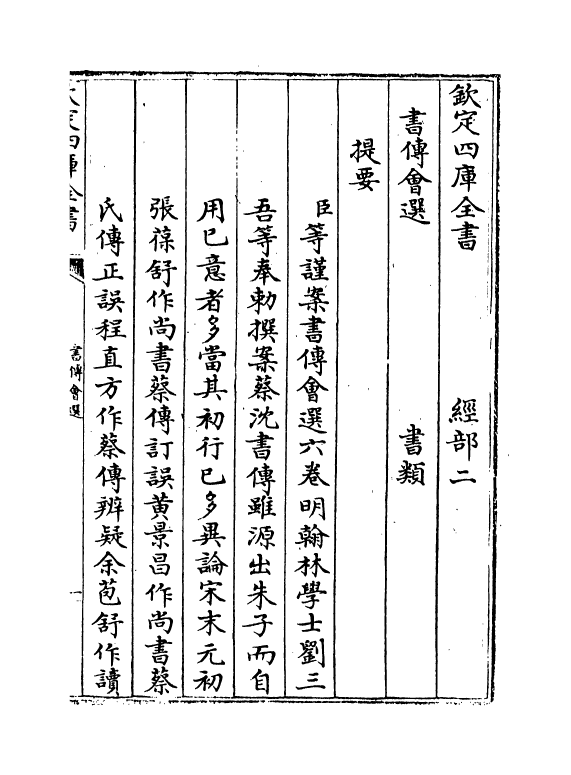 欽定四庫全書 經部二
書傳會選 書類
提要
臣等謹案書傳會選六卷明翰林學士劉三
吾等奉勅撰案蔡沈書傳雖源出朱子而自
用已意者多當其初行已多異論宋末元初
張葆舒作尚書蔡傳訂誤黄景昌作尚書蔡
氏傳正誤程直方作蔡傳辨疑余芑舒作讀
欽定四庫全書 書傳會選 一